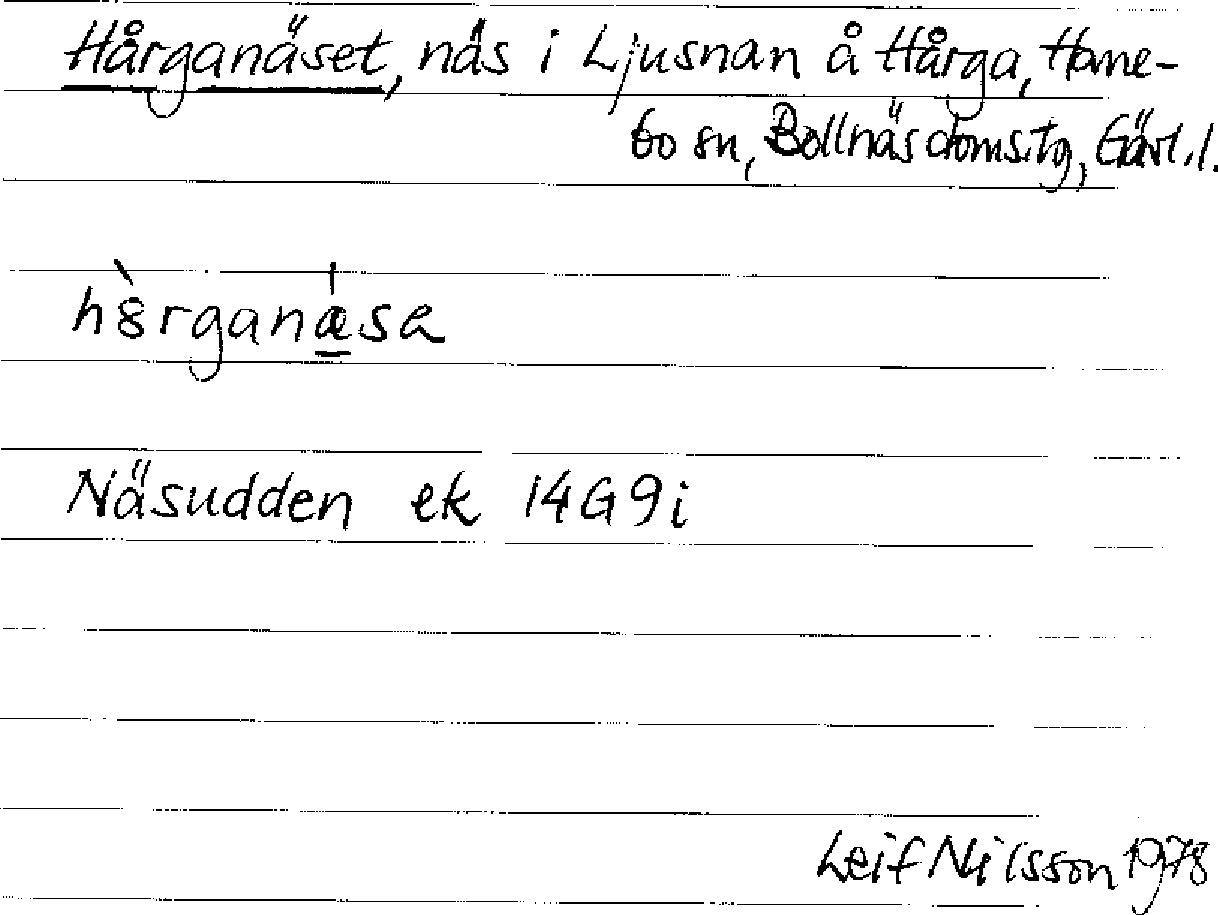 Hårganäset, näs i Ljusnan å Hårga, Hane-
bo sn, Bollnäs domstg, Gävl. l.
Näsudden ek 14G9i
Leif Nilsson 1978